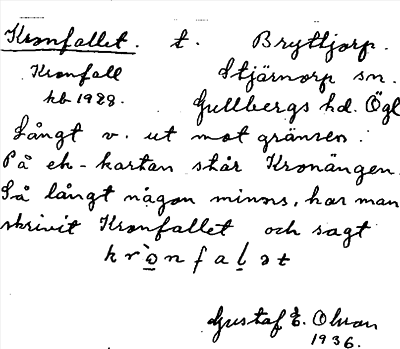 Kronfallet. t. Bryttjorp.
Kronfall Stjärnorp sn.
kb 1928. Gullbergs hd. Ögl
Långt v. ut mot gränsen.
På ek-kartan står Kronängen.
Så långt någon minns, har man
skrivit Kronfallet och sagt
krò̲nfal̲ət
Gustaf E. Olson
1936.